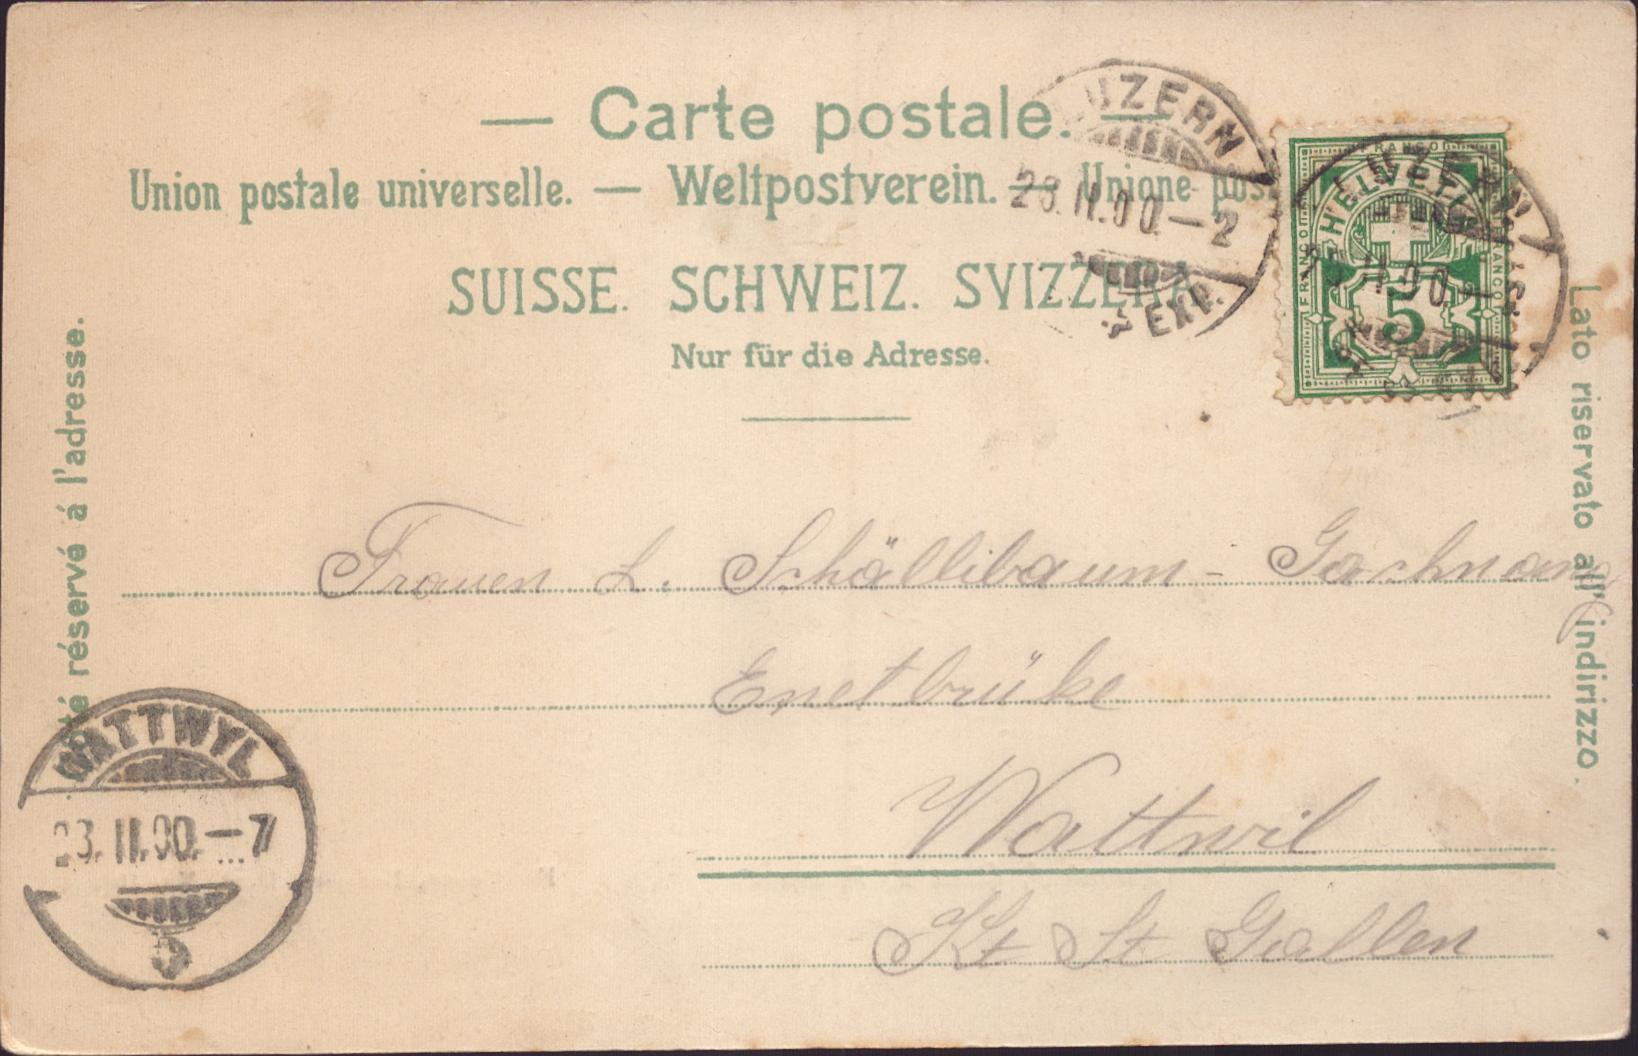 — Carte postale. —
Union postale universelle. — Weltpostverein. — Unione pos
SUISSE. SCHWEIZ. SVIZZERA.
Nur für die Adresse.
Côté réservé á l'adresse.
Lato riservato all' indirizzo.
LUZERN
23.II.00.–2
EXP.
FRANCO
HELVETIA
FRANCO
FRANCO
5
LUZERN
II.00.
Frauen L. Schällibaum - Gachnang
Enetbrüke
Wattwil
Kt St Gallen
WATTWYL
23.II.00.–7